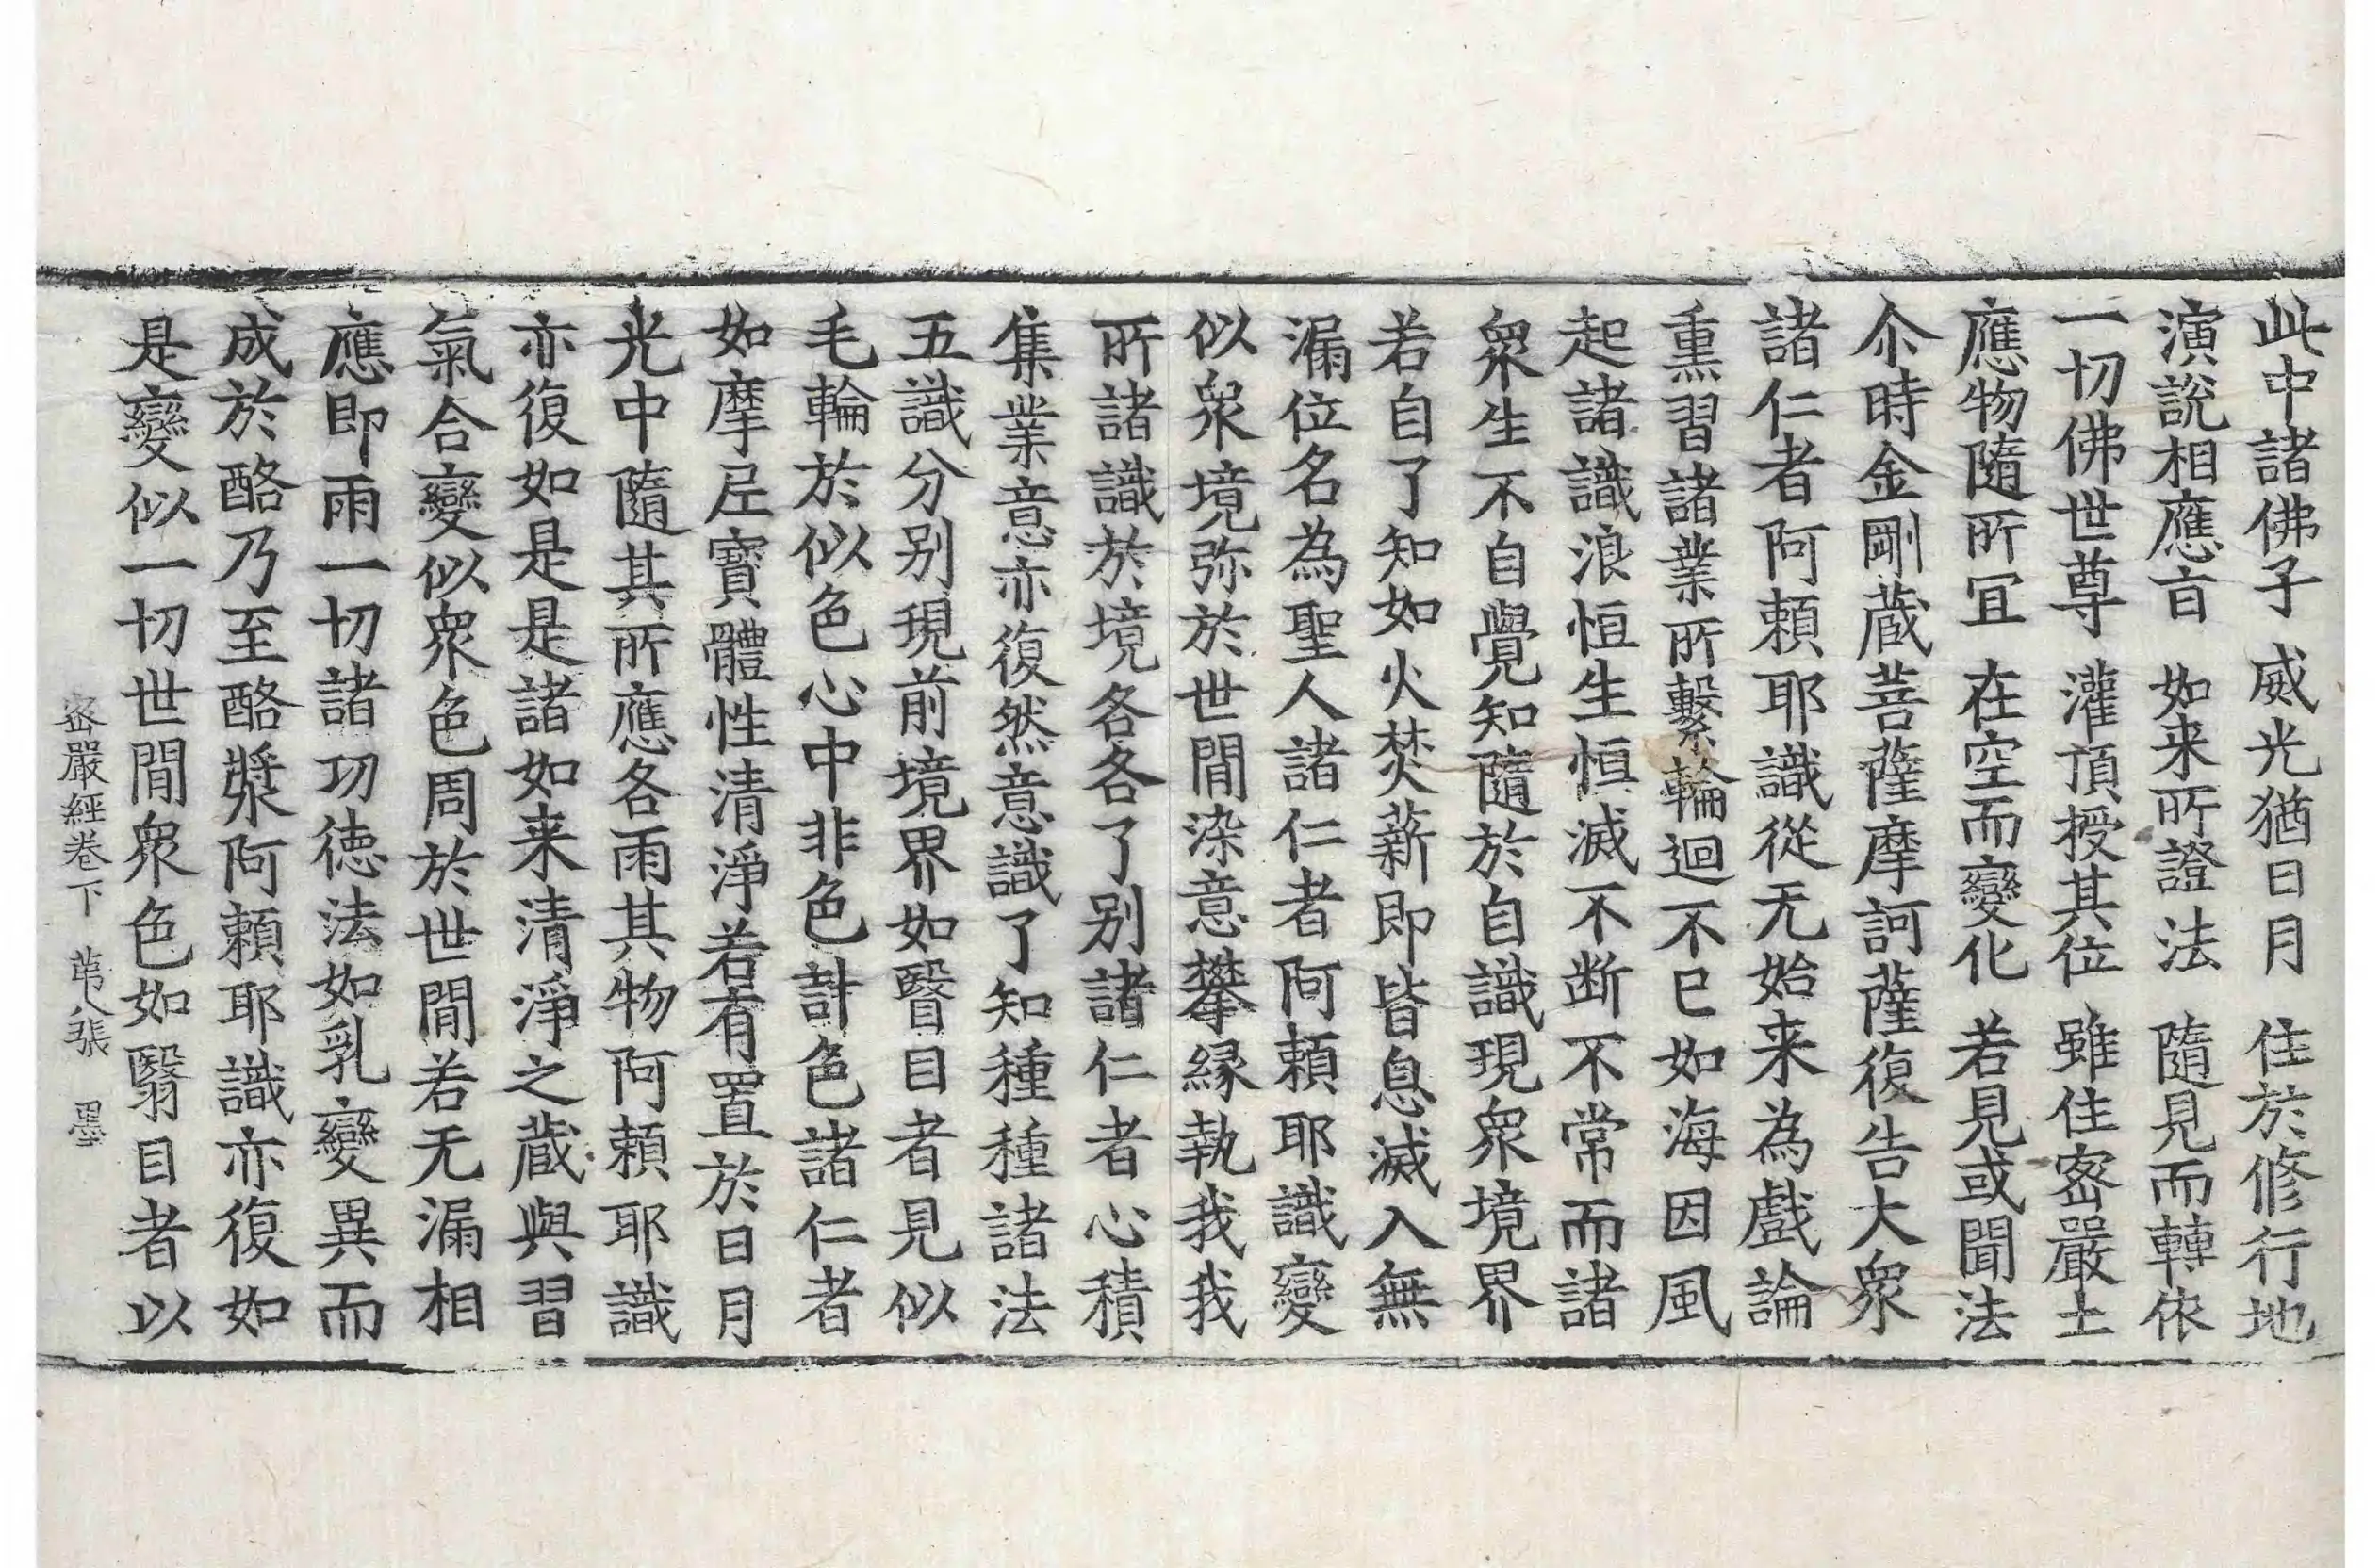 此中諸佛子 威光猶日月 住於修行地
演說相應㫖 如来所證法 隨見而轉依
一切佛世尊 灌頂授其位 雖住宻嚴土
應物隨所冝 在空而變化 若見或聞法
尒時金剛藏菩薩摩訶薩復告大衆
諸仁者阿頼耶識從无始来為戲論
熏習諸業所繫輪迴不已如海因風
起諸識浪恒生恒滅不断不常而諸
衆生不自覺知隨於自識現衆境界
若自了知如火焚薪即皆息滅入無
漏位名為聖人諸仁者阿頼耶識變
似衆境弥於世間染意攀縁執我我
所諸識於境各各了别諸仁者心積
集業意亦復然意識了知種種諸法
五識分别現前境界如瞖目者見似
毛輪於似色心中非色計色諸仁者
如摩尼寶體性清淨若有置於日月
光中隨其所應各雨其物阿頼耶識
亦復如是是諸如来清淨之藏與習
氣合變似衆色周於世間若无漏相
應即雨一切諸功徳法如乳變異而
成於酪乃至酪漿阿頼耶識亦復如
是變似一切世間衆色如翳目者以
宻嚴經卷下 苐八張 墨